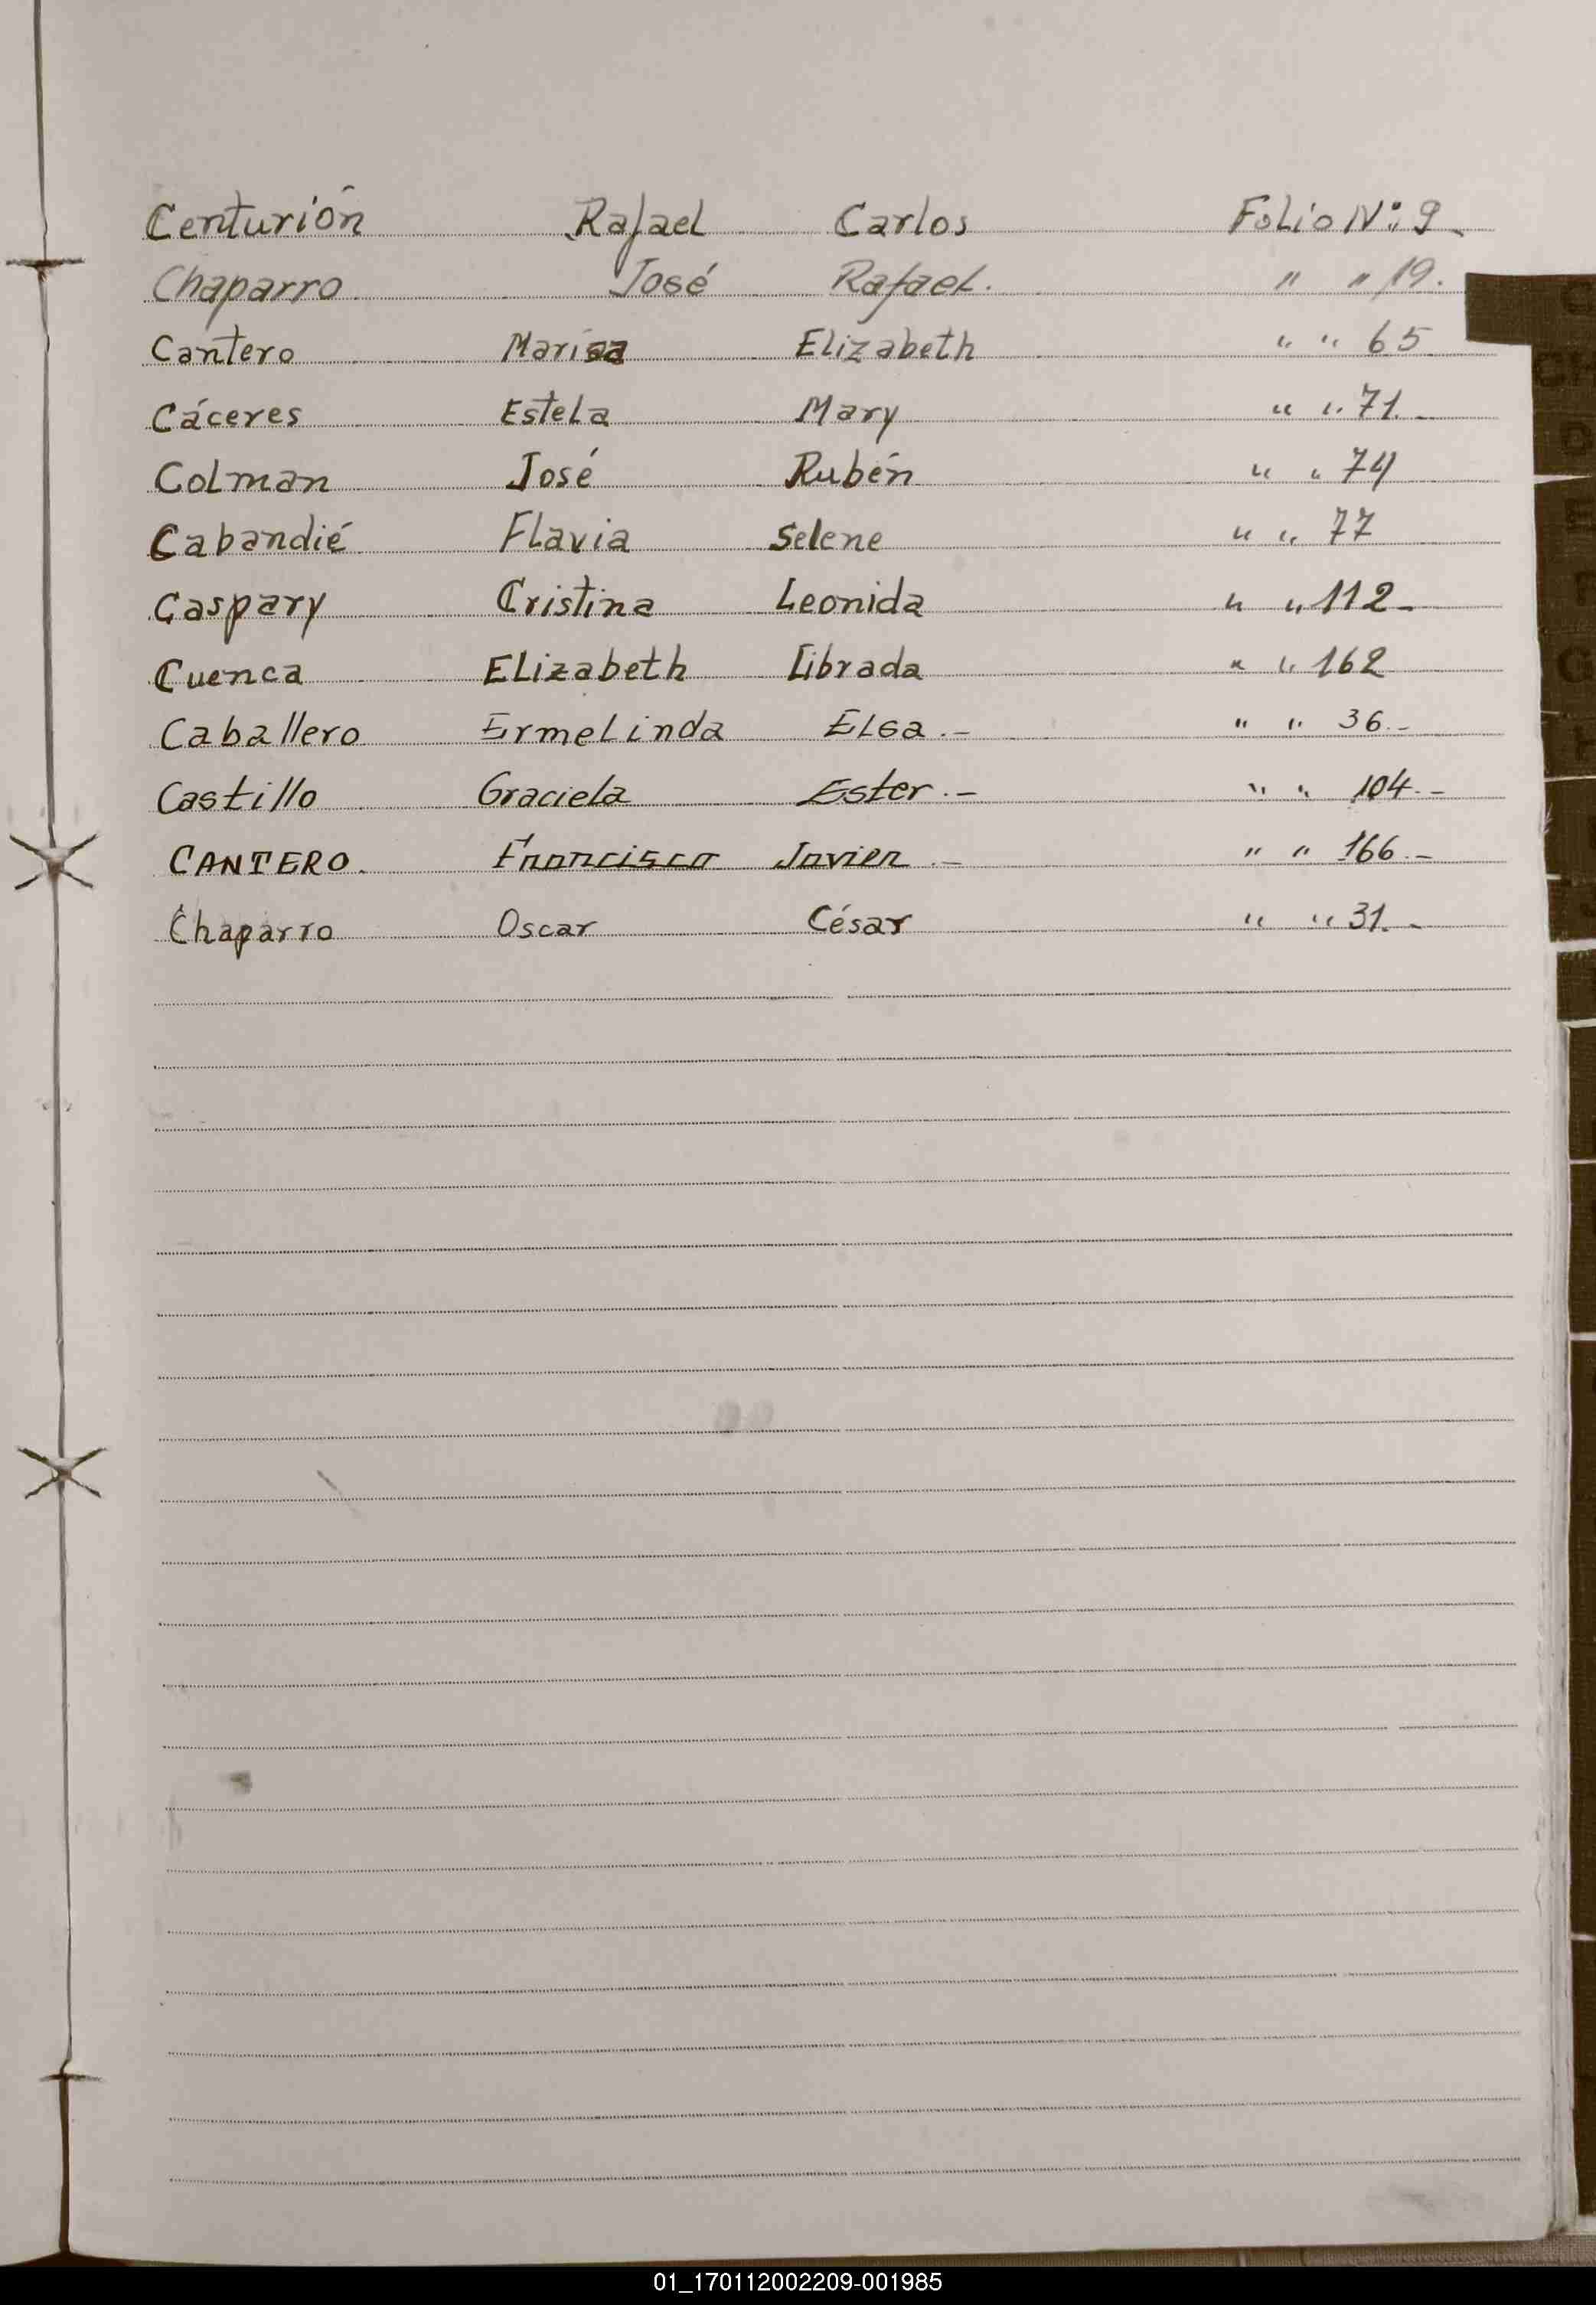 Centurión Rafael Carlos Folio Nº: 9.
Chaparro José Rafael. " " 19.
Cantero Marisa Elizabeth " " 65
Cáceres Estela Mary " " 71.-
Colman José Rubén " " 74
Cabandié Flavia Selene " " 77
Gaspary Cristina Leonida " " 112-
Cuenca Elizabeth Librada " " 162
Caballero Ermelinda Elsa.- " " 36.-
Castillo Graciela Ester.- " " 104.-
CANTERO. Francisco Javier.- " " 166.-
Chaparro Oscar César " " 31.-
01_170112002209-001985